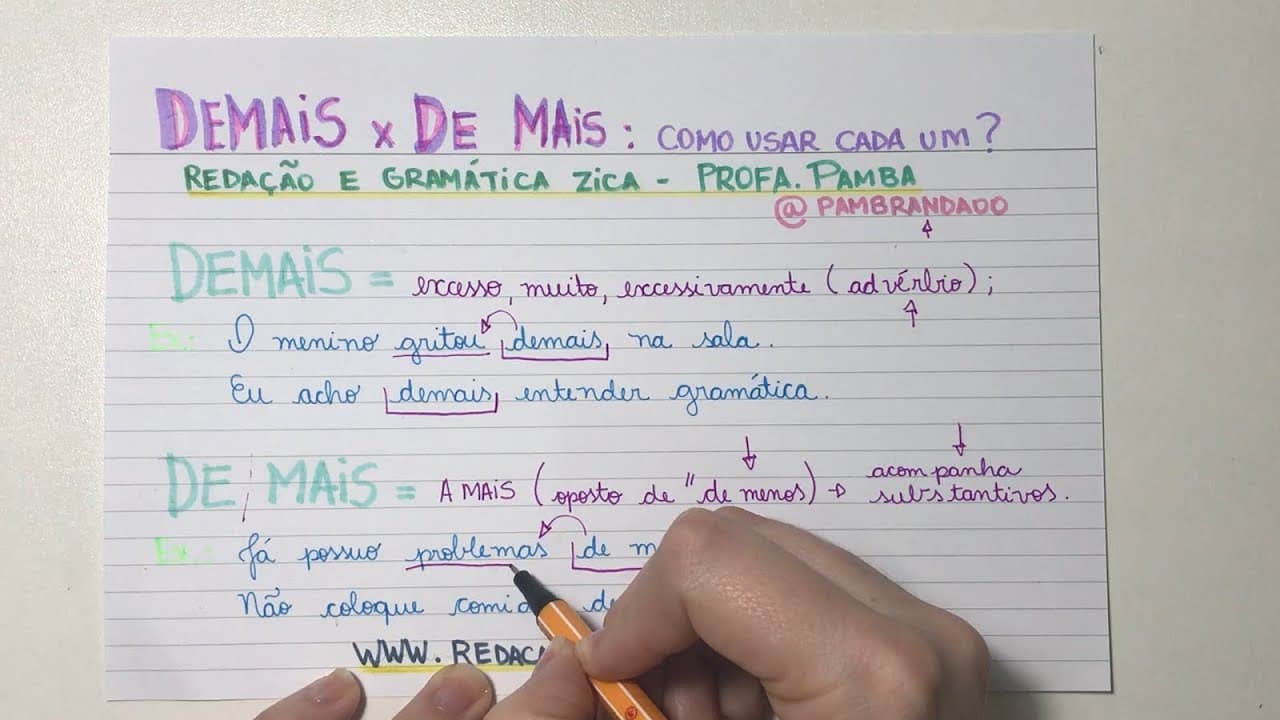 DEMAiS x DE MAiS: COMO USAR CADA UM?
REDAÇÃO E GRAMÁTICA ZiCA - PROFA. PAMBA
@PAMBRANDADO
DEMAiS = excesso, muito, excessivamente (advérbio);
Ex.: O menino gritou demais na sala.
Eu acho demais entender gramática.
DE MAiS = A MAIS (oposto de "de menos) → acompanha substantivos.
Ex.: Já possuo problemas de
Não coloque
WWW.